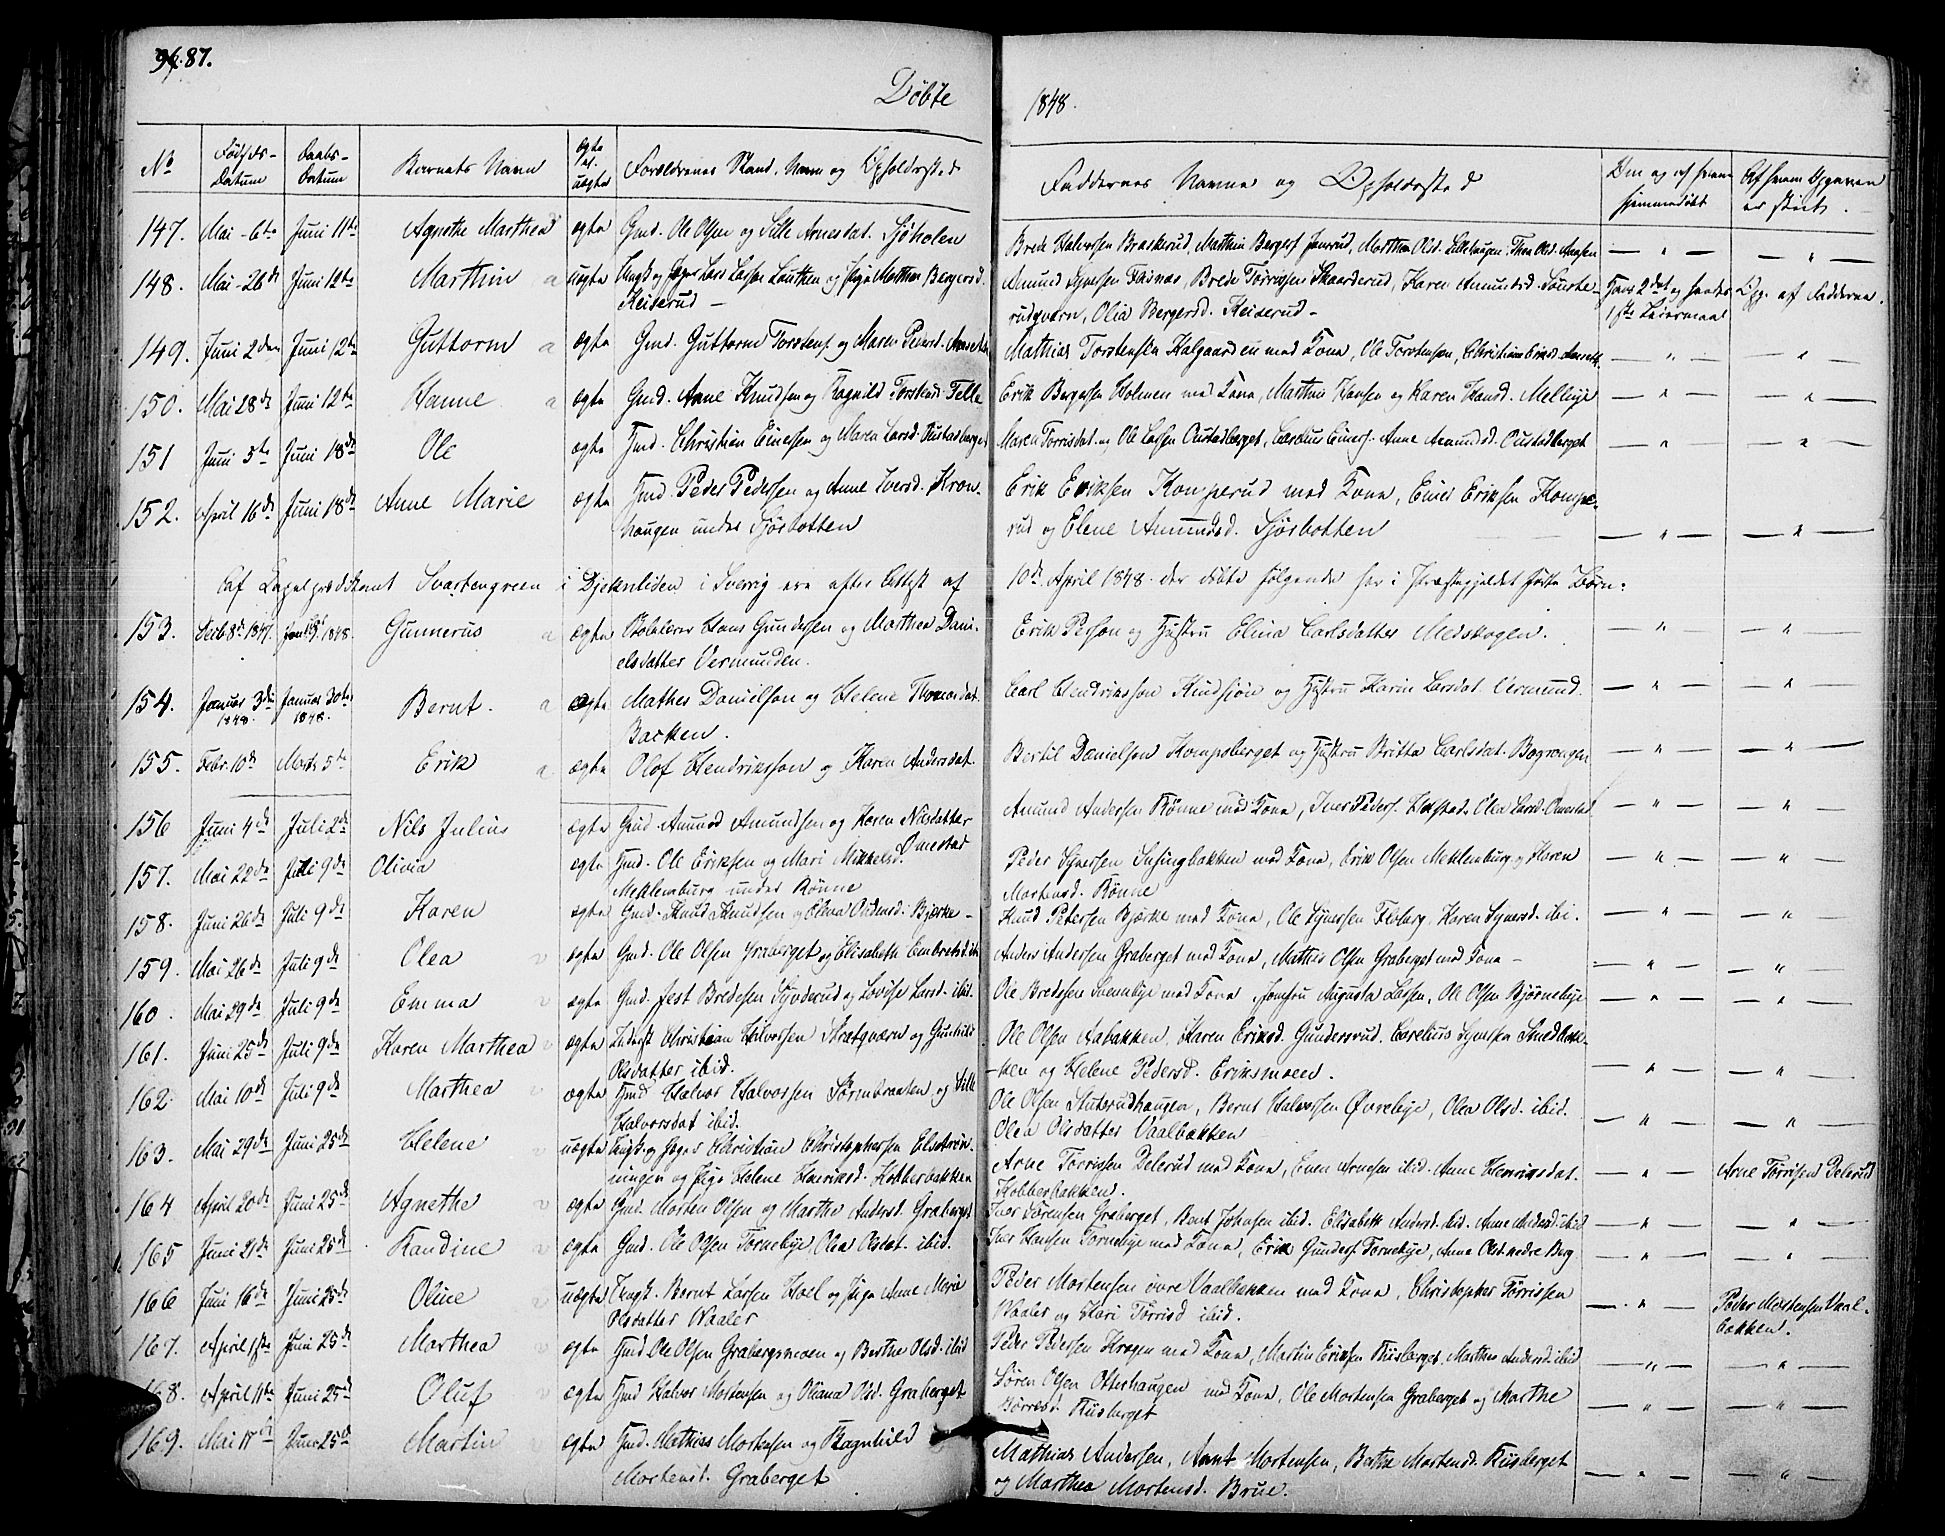 87.
Døbte
1848.
No
Fødsels-
Datum
Daabs-
Datum
Barnets Navn
ægte
el.
uægte
Forældrenes Stand, Navn og Opholdssted
Faddernes Navne og Opholdssted
Om og af hvem
hjemmedøbt
Af hvem Opgaven
er skeet.
147. Mai 6te Juni 11te Agnethe Marthea ægte Gmd. Ole Olsen og Sille Arnesdat. Sjøholen
Brede Halvorsen Braskerud, Marthin Bergers. Marthea Olsd. Lillehaugen, Thea Olsd. — " — — " —
148. Mai 26de Juni 12te Marthin a uægte Ungk. og Lars Larsen og Pige Marthea Bergersd.
Keiserud —
Amund Brede Tørrissen Skaarderud, Karen Amundsd. Sourke-
rudqværn, Olia Bergersd. Keiserud — Hans 2det og hendes
1ste Leiermaal Opg. af Fadderne.
149. Juni 2den Juni 12te Guttorm a ægte Gmd. Guttorm Torstens. og Maren Pedersd.
Mathias Torstensen Kalgaarden med Kona, Ole Torstensen, — " — — " —
150. Mai 28de Juni 12te Hanne a ægte Gmd. Arne Knudsen og Ragnild Torstensd.
Erik Bergersen Holmen med Kona, Marthin Hansen og Karen Hansd. Mellbye — " — — " —
151 Juni 5te Juni 18de Ole ægte Hmd. Christian Einersen og Maren Larsd. Oustadberget
Maren Torrisdat. og Ole Larsen Oustadberget, Carelius Einers. Anne Amundsd. Oustadberget — " — — " —
152. April 16de Juni 18de Anne Marie ægte Hmd. Peder Pedersen og Anne Iversd. Kron-
haugen under Sjørbotten
Erik Eriksen Komperud med Kona, Einer Eriksen Kompe-
rud og Elene Amundsd. Sjørbotten — " — — " —
Af Capelprædikant Svartengreen i Djekneliden i Sverrig ere efter Attest af 10de April 1848 der døbte følgende her i Præstegjeldet fødte Børn:
153. Decb 8de 1847. 1848. Gunnerus a ægte Hans Gundersen og Marthea Dani-
elsdatter Vermunden.
Erik Person og Hustru Elina Carlsdatter Medskogen. — " — — " —
154. Januar 3de
1848. Januar 30te
1848. Bernt. a ægte Mathes Danielson og Helene Thomasdat.
Barken.
Carl Hendriksson og Hustru Karin Larsdat. Vermund. — " — — " —
155. Febr. 10de Marts 5te Erik a ægte Olof Hendriksson og Karen Andersdat.
Bertil Danielsen Kompsberget og Hustru Britta Carlsdat. Bograngen — " — — " —
156 Juni 4de Juli 2de Nils Julius ægte Gmd Amund Amundsen og Karen Nilsdatter
Omestad
Amund Andersen Rønne med Kona, Iver Peders. Olea Larsd. Omestad — " — — " —
157. Mai 22de Juli 9de Olivia ægte Hmd. Ole Eriksen og Mari Mikkelsd.
Meklenburg under Rønne
Peder Syversen med Kona, Erik Olsen Meklenburg og Karen
Mortensd. Rønne — " — — " —
158. Juni 26de Juli 9de Karen ægte Gmd. Knud Knudsen og Olea Bjerke —
Knud Petersen Bjerke med Kona, Ole Syversen Karen Syversd. ibi. — " — — "
159. Mai 26de Juli 9de Olea v ægte Gmd. Ole Olsen Graberget og Elisabeth Embretsd. ib.
Anders Andersen Graberget med Kona, Mathis Olsen Graberget med Kona — — " — — " —
160. Mai 29de Juli 9de Emma v ægte Gmd. Jest Bredesen og Lovise Larsd. ibid.
Ole Bredesen Svennebye med Kona Jomfru Augusta Larsen, Ole Olsen Bjørnebye — " — — " —
161. Juni 25de Juli 9de Karen Marthea v ægte Christian Halvorsen og Gunhild
Olsdatter ibid.
Ole Olsen Aabakken, Karen Eriksd. Gundersrud, Carelius Syversen Smedbak-
ken og Helene Pedersd. Eriksmoen. — " — — " —
162. Mai 10de Juli 9de Marthea v ægte Hmd Halvor Halvorsen Sørenbraaten og Sille
Halvorsdat ibid.
Ole Olsen Stuterudhaugen, Bernt Halvorsen Øvrebye, Olea Olsd. ibid.
Olea Olsdatter Vaalbakken — " — — "
163. Mai 29de Juni 25de Helene v uægte Ungk. og Christian Christophersen
og Pige Helene Henriksd. Kobberbakken
Arne Torrissen Delerud med Kona, Even Arnesen ibid. Anne Henriksdat.
Kobberbakken. — " — Arne Torrisen Delerud
164 April 20de Juni 25de Agnethe v ægte Gmd. Morten Olsen og Marthe Andersd. Graberget
Iver Sørensen Graberget, Bernt Johnsen ibid. Elisabeth Andersd. ibid. Anne Andersd. ibid — " — — " —
165 Juni 21de Juni 25de Randine v ægte Gmd. Ole Olsen Tornebye, Olea Olsdat. ibid.
Iver Hansen Tornebye med Kona, Erik Gunders. Tornebye, Anne Olsd. nedre Berg — " — — " —
166 Juni 16de Juni 25de Oline v uægte Ungk. Bernt Larsen Hoel og Pige Anne Marie
Olsdatter Vaaler
Peder Mortensen øvre Vaalbakken med Kona, Christopher Tørrissen
Vaaler og Kari Tørrisd ibid. — " — Peder Mortensen Vaal-
bakken.
167. April 1ste Juni 25de Marthea v ægte Hmd Ole Olsen Grabergsmoen og Berthe Olsd. ibid
Peder Pedersen Krogen med Kona, Martin Eriksen Risberget Marthea Andersd. ibid — " — — " —
168. April 11te Juni 25de Oluf v ægte Hmd Halvor Mortensen og Oliana Olsd. Graberget
Søren Olsen Otterhaugen med Kona, Ole Mortensen Graberget og Marthe
Risberget — " — — " —
169. Mai 17de Juni 25de Martin v ægte Hmd. Mathias Mortensen og Ragnhild
Mortensd. Graberget
Mathias Andersen, Arnt Mortensen, Berthe Mortensd. Risberget
og Marthea Mortensd. Brue. — " — — " —